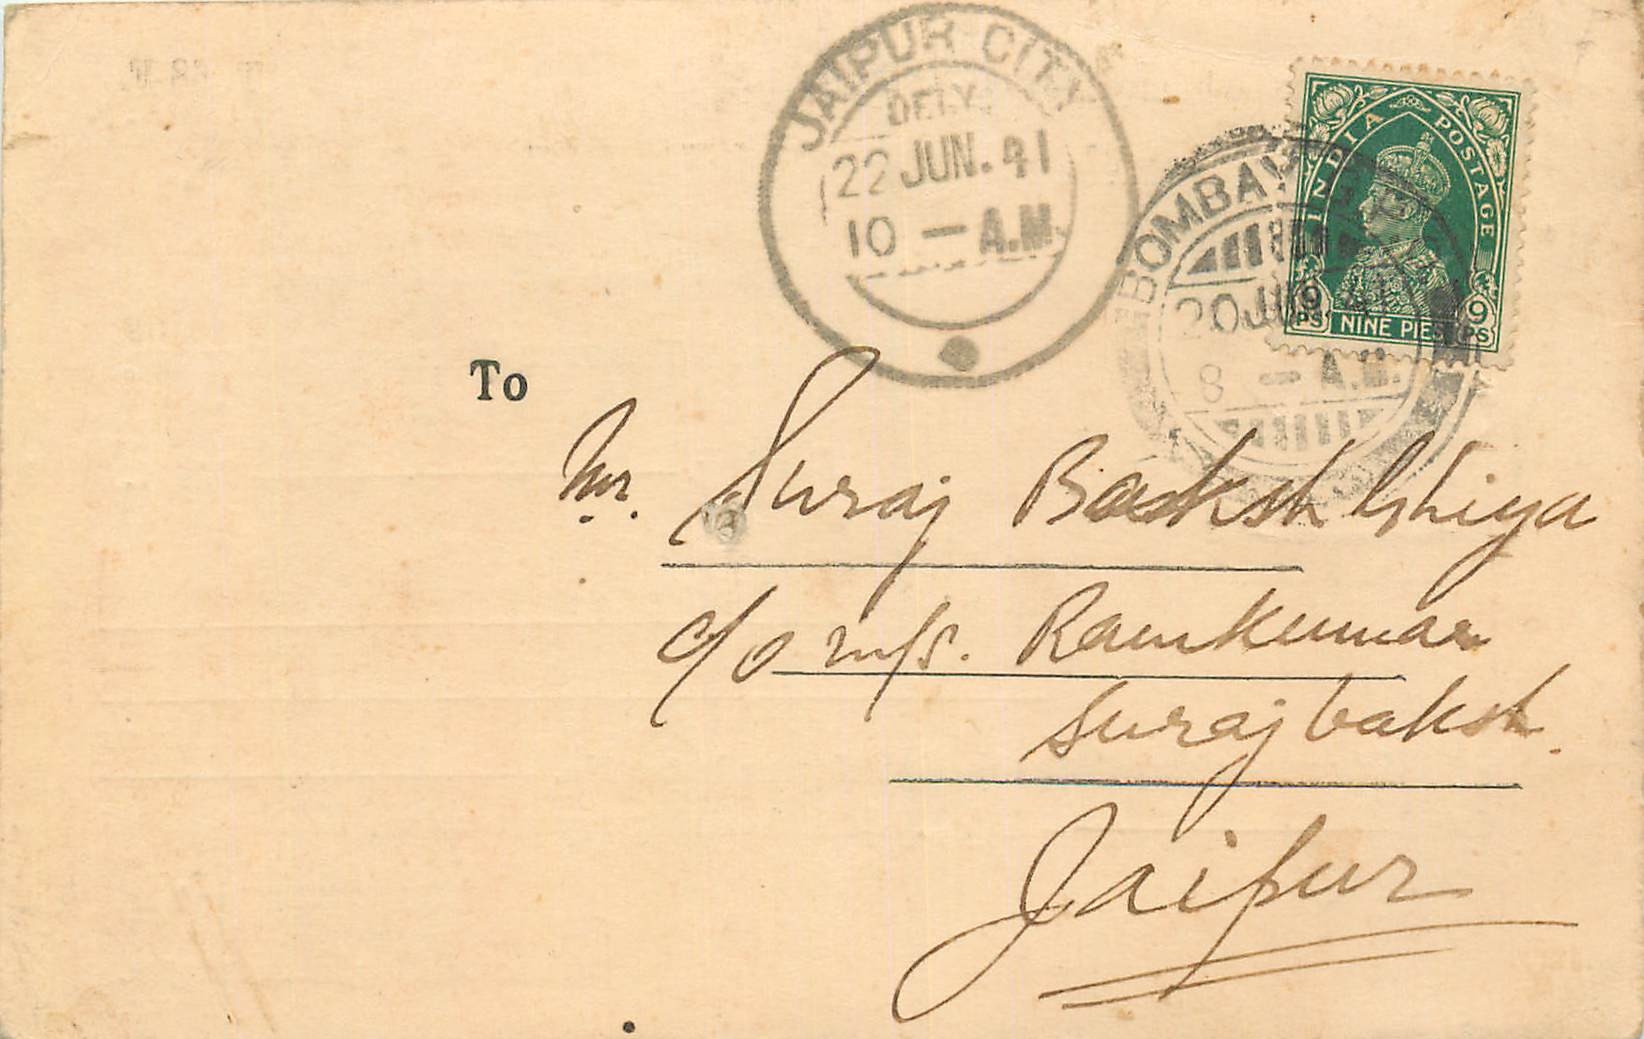 JAIPUR CITY
DELY.
22 JUN. 41
10 — A.M.
BOMBAY
20 JUN. 41
8 — A.M.
INDIA POSTAGE
9 PS NINE PIES 9 PS
To
Mr. Suraj Baksh Ghiya
c/o m/s. Ramkumar
Surajbaksh.
Jaipur